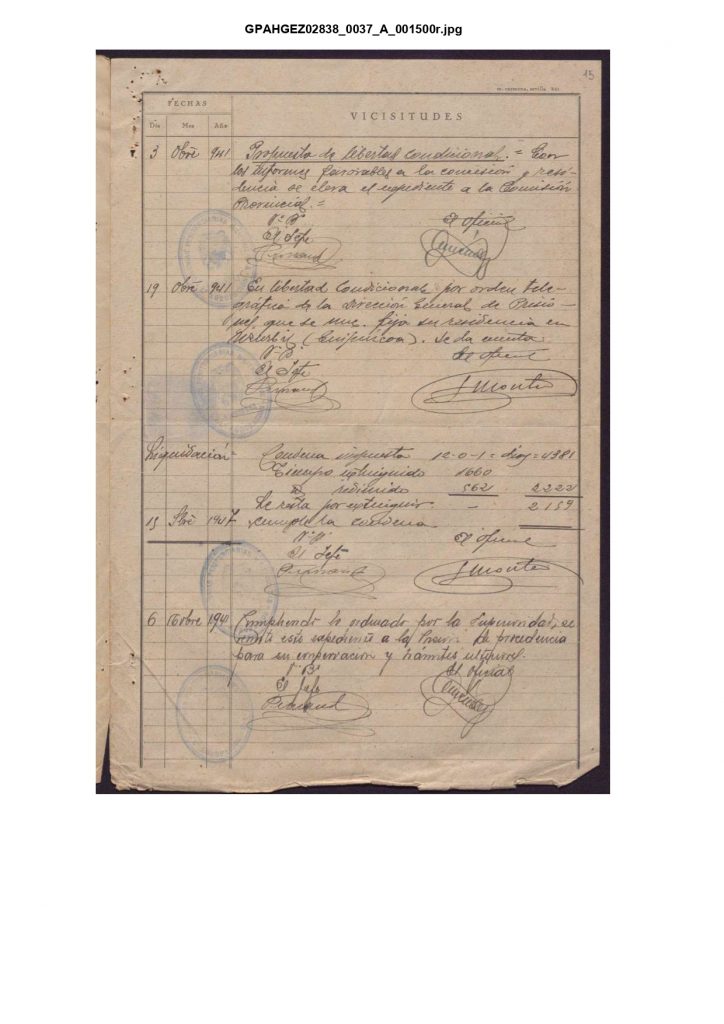 GPAHGEZ02838_0037_A_001500r.jpg
15
FECHAS
VICISITUDES
Día Mes Año
3 Obre 941 Propuesta de libertad condicional. = Con
los informes favorables a la concesión y resi-
dencia se eleva el expediente a la Comisión
Provincial. =
Vº Bº El Oficial
El Jefe
19 Obre 941 En libertad Condicional por orden tele-
gráfica de la Dirección General de Prisio-
nes, que se une. fija su residencia en
(Guipúzcoa). Se da cuenta
Vº Bº El Oficial
El Jefe
J Monte
Liquidación = Condena impuesta 12-0-1 = días = 4381
Tiempo extinguido 1660
redimido 562 2222
Le resta por extinguir - 2159
15 1947 cumple la condena
Vº Bº El Oficial
El Jefe
J Monte
6 1941 Cumpliendo lo ordenado por la Superioridad, se
remite este expediente a la de procedencia
para su conservacion y trámites ulteriores.
Vº Bº El Oficial
El Jefe